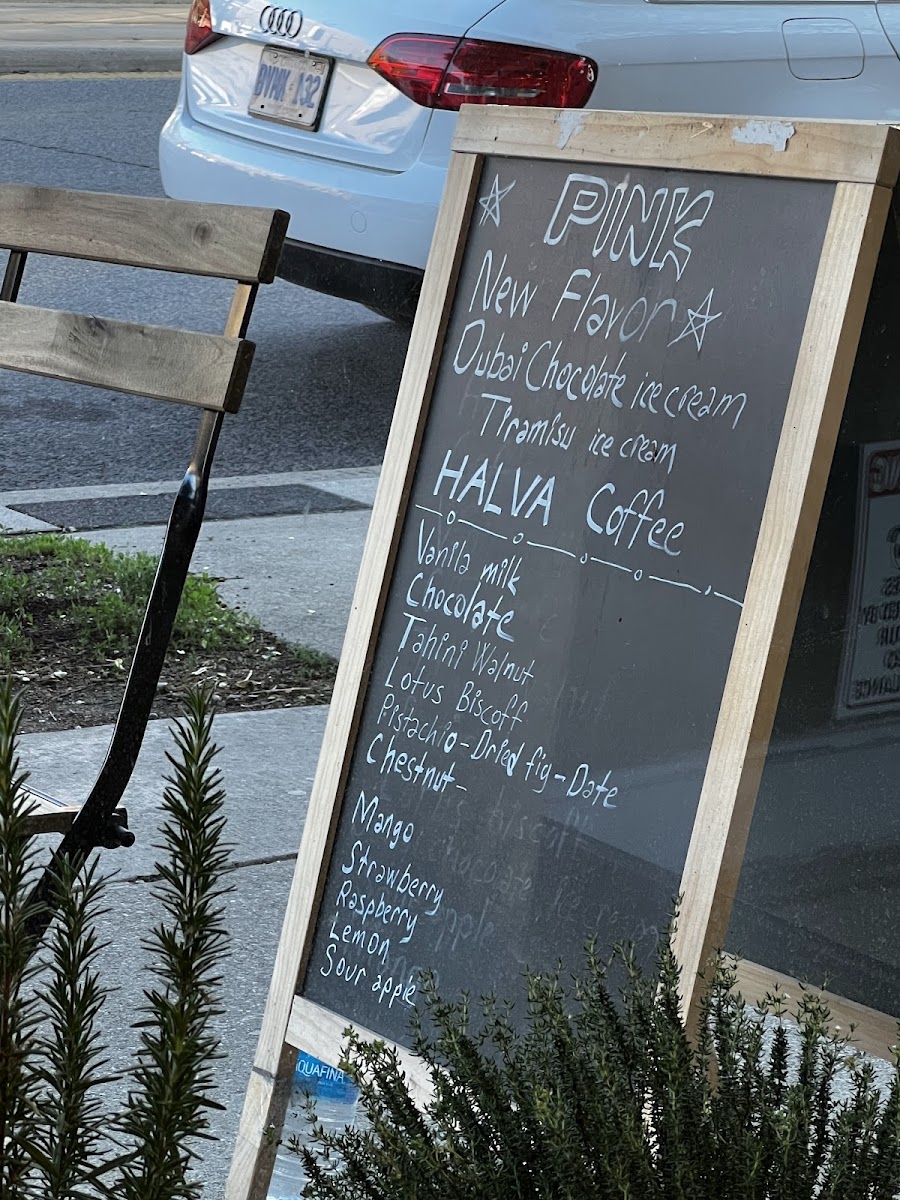 BYMX 132
PINK
New Flavor
Dubai Chocolate ice cream
Tiramisu ice cream
HALVA Coffee
Vanila milk
Chocolate
Tahini Walnut
Lotus Biscoff
Pistachio - Dried fig - Date
Chestnut -
Mango
Strawberry
Raspberry
Lemon
Sour apple
QUAFINA